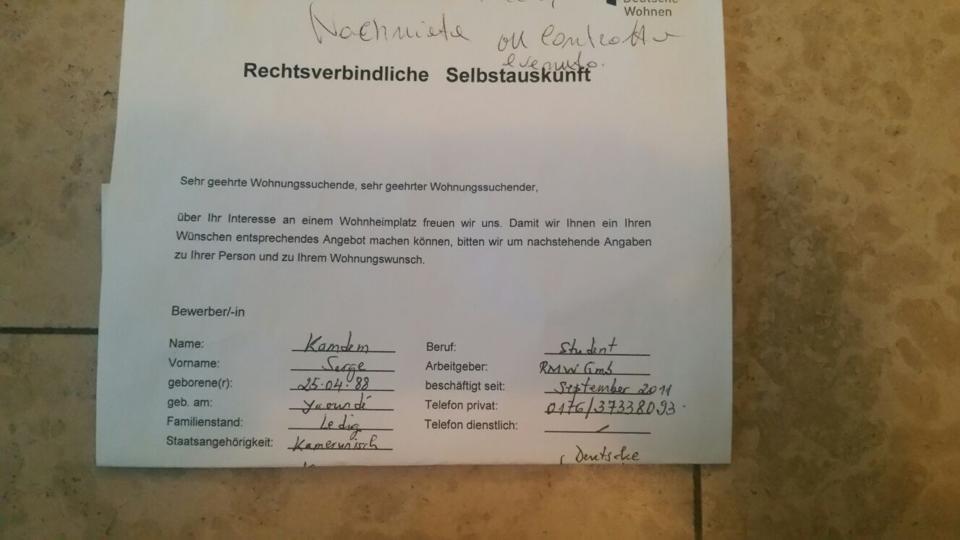 Deutsche
Wohnen
Nachmiete ou Contrat
Rechtsverbindliche Selbstauskunft
Sehr geehrte Wohnungssuchende, sehr geehrter Wohnungssuchender,
über Ihr Interesse an einem Wohnheimplatz freuen wir uns. Damit wir Ihnen ein Ihren
Wünschen entsprechendes Angebot machen können, bitten wir um nachstehende Angaben
zu Ihrer Person und zu Ihrem Wohnungswunsch.
Bewerber/-in
Name: Kamdem Beruf: Student
Vorname: Serge Arbeitgeber: RMW Gmb
geborene(r): 25.04.88 beschäftigt seit: September 2011
geb. am: Yaoundé Telefon privat: 0176/37338093
Familienstand: ledig Telefon dienstlich: /
Staatsangehörigkeit: Kamerunisch
Deutsche